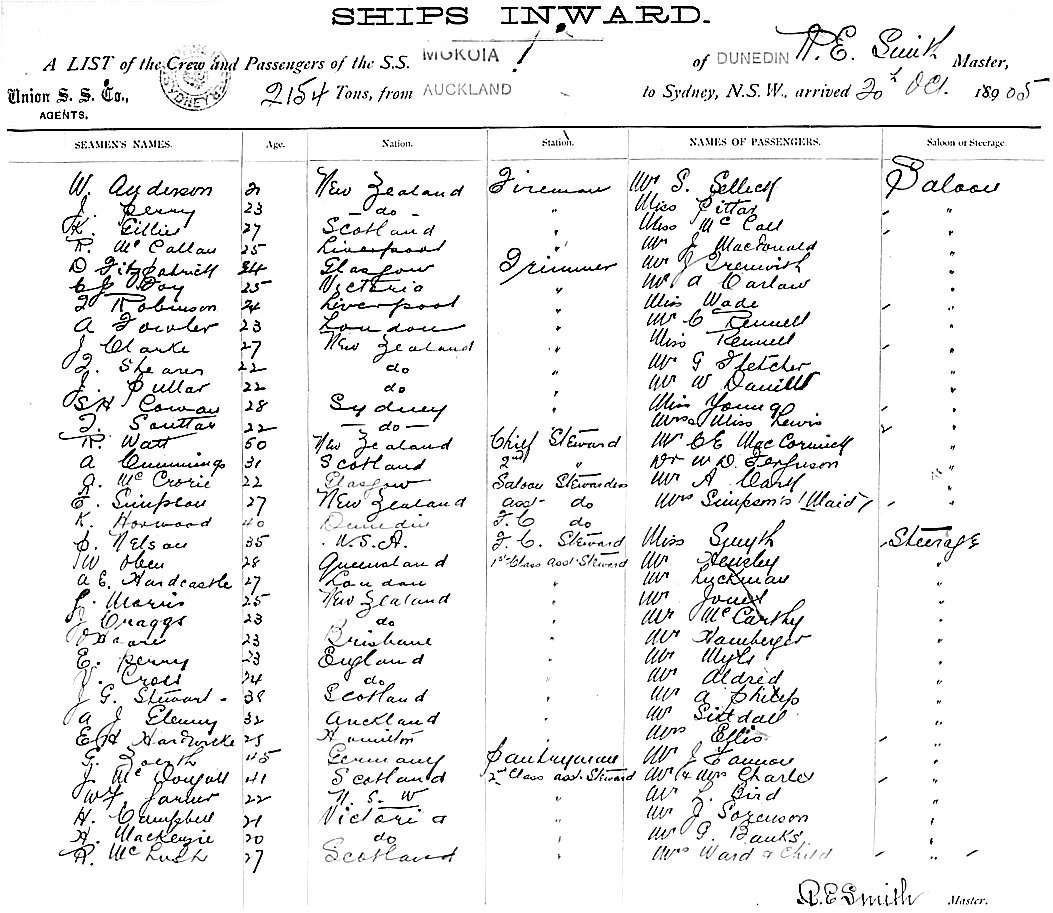 SHIPS INWARD.
A LIST of the Crew and Passengers of the S.S. MOKOIA of DUNEDIN R. E. Smith Master,
Union S. S. Co., AGENTS. 2154 Tons, from AUCKLAND to Sydney, N.S.W., arrived 20th Oct. 1905
SEAMEN'S NAMES. Age. Nation. Station. NAMES OF PASSENGERS. Saloon or Steerage.
W. Anderson New Zealand Fireman Mr S. Selleck Saloon
J. Perry 23 - do - " Miss Pittar "
K. Gillies 27 Scotland " Miss McCall "
R. McCallan 25 Liverpool " Mr J Macdonald "
D Fitzpatrick 34 Glasgow Trimmer Mr J "
Foy 25 Victoria " Mr A Carlaw "
Robinson 24 Liverpool " Miss Wade "
A Fowler 23 London " Mr C Rennell "
J. Clarke 27 New Zealand " Miss Rennell "
Shearer 22 do " Mr G Fletcher "
J. Pullar 22 do " Mr W "
S H Cowan 28 Sydney " Miss Young "
Souttar 22 - do - " Miss Lewis "
R. Watt 50 New Zealand Chief Steward Mr C E MacCormick "
A Cummings 31 Scotland 2nd " Dr W. D. Ferguson "
A. McCrorie 22 Glasgow Saloon Stewardess Mr A "
E. Simpson 27 New Zealand asst do Mrs Simpson's (Maid) "
K. Horwood 40 Dunedin F. C do
Nelson 35 U.S.A. F. C. Steward Miss Smyth Steerage
W Oben 28 Queensland 1st Class asst Steward Mr Hensley "
A E. Hardcastle 27 London " Mr Luckman "
Morris 25 New Zealand " Mr Jones "
J Craggs 23 do " Mr McCarthy "
Hoare 23 Brisbane " Mr Hamberger "
E. Perry 23 England " Mr "
Cross 24 do " Mr Aldred "
J G. Stewart 38 Scotland " Mr A Philip "
A J Glenny 32 Auckland " Mr Siddall "
E H Hardwicke 25 Hamilton " Mrs Ellis "
G. 45 Germany Pantryman Mr J Cannon "
J. McDougall 41 Scotland 2nd Class asst Steward Mr & Mrs Charles "
W J. 22 N. S. W " Mr L. Bird "
H. Campbell 21 Victoria " Mr J Sorenson "
H. Mackenzie 20 do " Mr G. Banks "
R. 27 Scotland " Mrs Ward & Child "
R. E Smith Master.